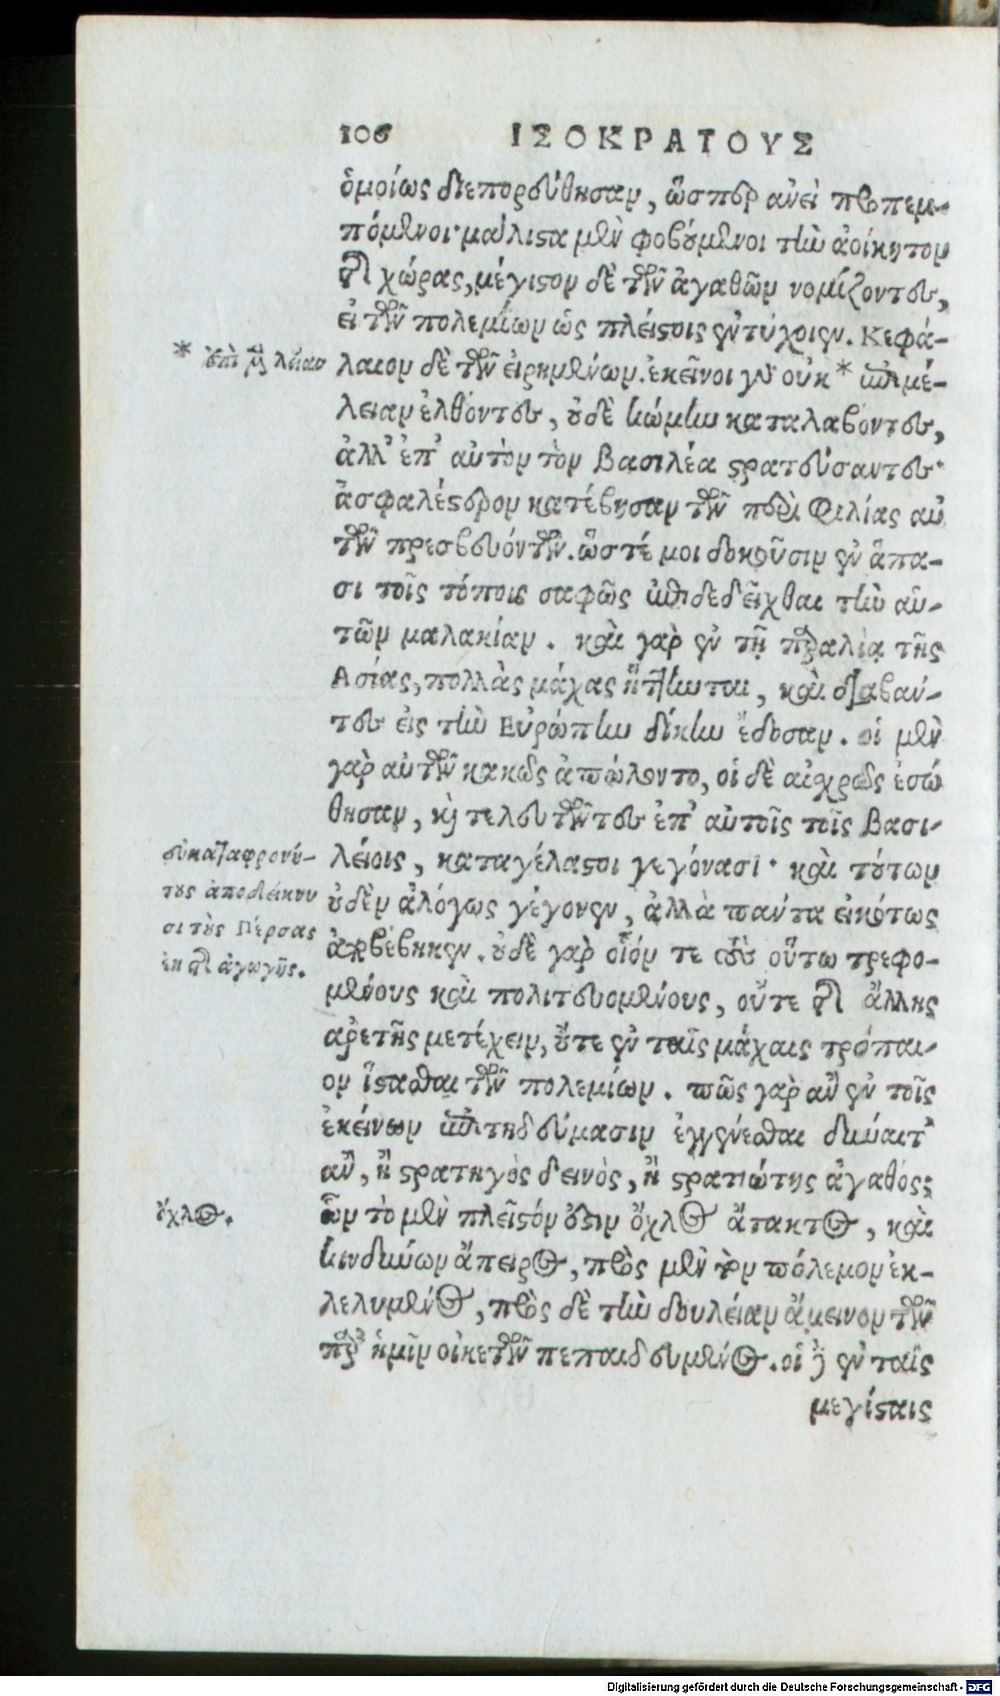 106 ΙΣΟΚΡΑΤΟΥΣ
ὁμοίως διεπορεύθησαν, ὥσπερ ἀνεὶ προπεμ-
πόμενοι· μάλιστα μὲν φοβούμενοι τὴν ἀοίκητον
τῆς χώρας, μέγιστον δὲ τῶν ἀγαθῶν νομίζοντες,
εἰ τῶν πολεμίων ὡς πλείστοις ἐντύχοιεν. Κεφά-
* ἐπὶ λείαν
λαιον δὲ τῶν εἰρημένων. ἐκεῖνοι γὰρ οὐκ * ἐπιμέ-
λειαν ἐλθόντες, οὐδὲ κώμην καταλαβόντες,
ἀλλ' ἐπ' αὐτὸν τὸν Βασιλέα στρατεύσαντες·
ἀσφαλέστερον κατέβησαν τῶν περὶ Φιλίας αὐ
τῶν πρεσβευόντων. ὥστέ μοι δοκοῦσιν ἐν ἅπα-
σι τοῖς τόποις σαφῶς ἐπιδεδεῖχθαι τὴν αὑ-
τῶν μαλακίαν. καὶ γὰρ ἐν τῇ παραλίᾳ τῆς
Ἀσίας, πολλὰς μάχας ἥττηνται, καὶ διαβάν-
τες εἰς τὴν Εὐρώπην δίκην ἔδοσαν. οἱ μὲν
γὰρ αὐτῶν κακῶς ἀπώλοντο, οἱ δὲ αἰσχρῶς ἐσώ
θησαν, καὶ τελευτῶντες ἐπ' αὐτοῖς τοῖς Βασι-
λείοις, καταγέλαστοι γεγόνασι· καὶ τούτων
οὐδὲν ἀλόγως γέγονεν, ἀλλὰ πάντα εἰκότως
ἀποβέβηκεν. οὐδὲ γὰρ οἷόν τε τοὺς οὕτω τρεφο-
μένους καὶ πολιτευομένους, οὔτε τῆς ἄλλης
ἀρετῆς μετέχειν, οὔτε ἐν ταῖς μάχαις τρόπαι-
ον ἵστασθαι τῶν πολεμίων. πῶς γὰρ ἂν ἐν τοῖς
ἐκείνων ἐπιτηδεύμασιν ἐγγενέσθαι δύναιτ'
ἂν, ἢ στρατηγὸς δεινὸς, ἢ στρατιώτης ἀγαθός;
ὧν τὸ μὲν πλεῖστόν ἐστιν ὄχλος ἄτακτος, καὶ
κινδύνων ἄπειρος, πρὸς μὲν τὸν πόλεμον ἐκ-
λελυμένος, πρὸς δὲ τὴν δουλείαν ἄμεινον τῶν
παρ' ἡμῖν οἰκετῶν πεπαιδευμένος. οἱ δ' ἐν ταῖς
μεγίσταις
εὐκαταφρονή-
τους ἀποδείκνυ
σι τοὺς Πέρσας
ἐκ τῆς ἀγωγῆς.
ὄχλος.
Digitalisierung gefördert durch die Deutsche Forschungsgemeinschaft - DFG